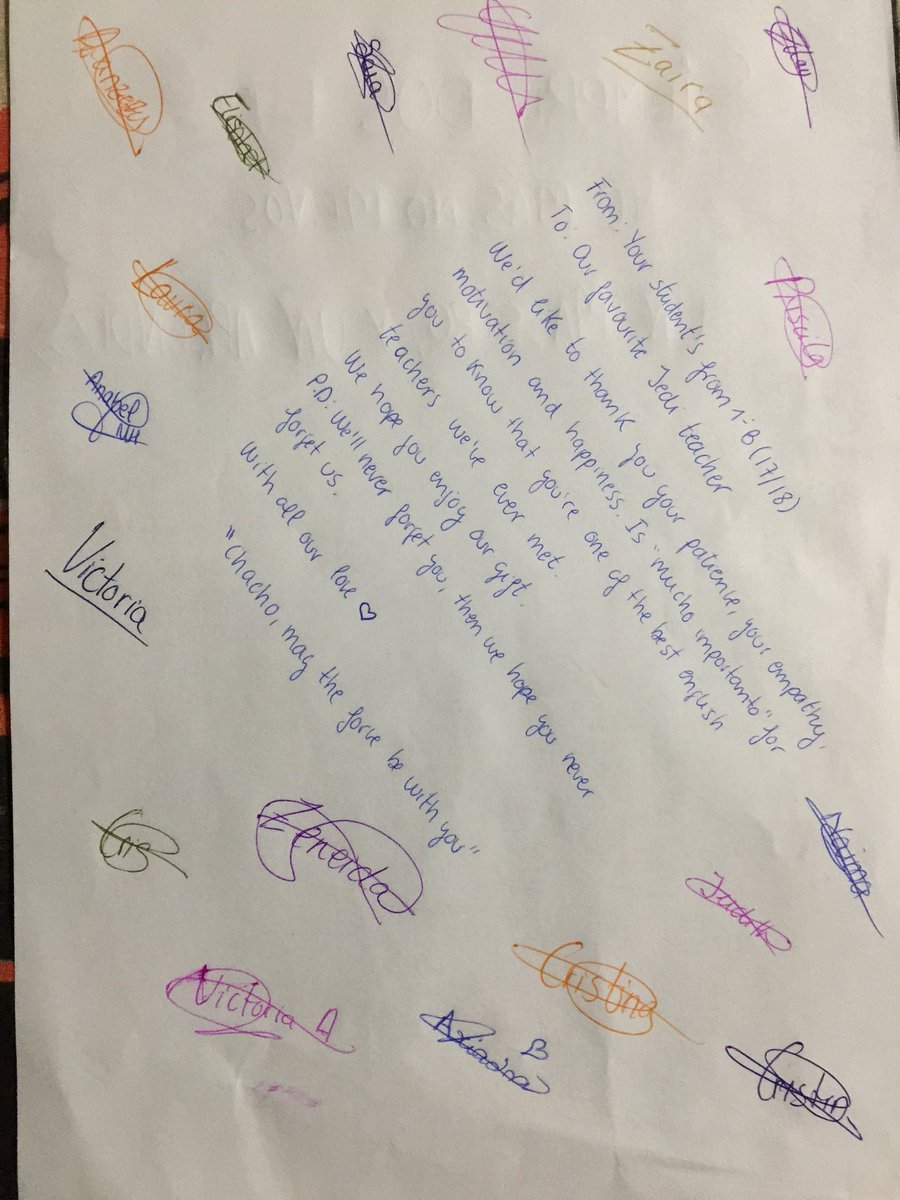 Elisabet
Sara
Zaira
From: Your student's from 1ºB (17/18)
To: Our favourite Jedi teacher
We'd like to thank you your patience, your empathy,
motivation and happiness. Is "mucho importanto" for
you to know that you're one of the best english
teachers we've ever met.
We hope you enjoy our gift.
P.D: We'll never forget you, then we hope you never
forget us.
With all our love ♡
"Chacho, may the force be with you"
Priscila
Laura
Anabel
NH
Victoria
Cris
Zeneida
Naima
Judith
Cristina
Victoria A
Ariadna B
Cristina